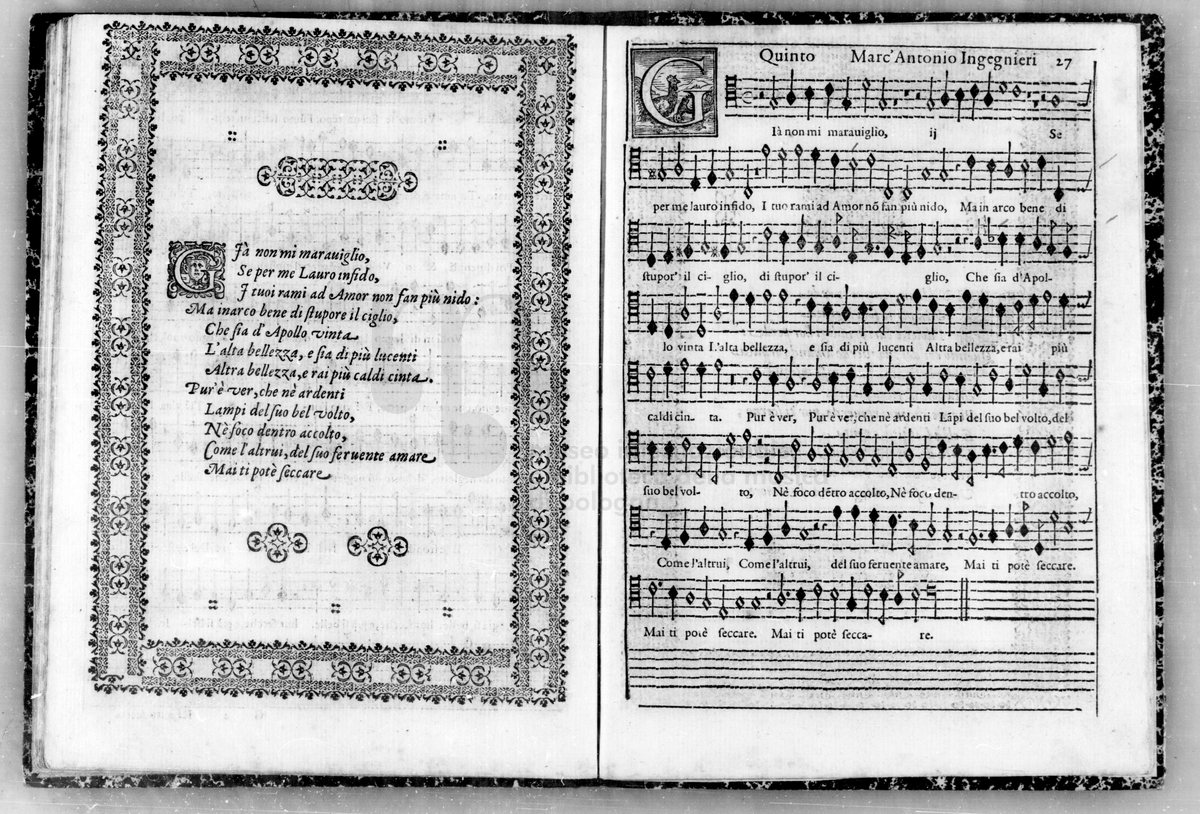 Già non mi marauiglio,
Se per me Lauro infido,
I tuoi rami ad Amor non fan più nido:
Ma inarco bene di stupore il ciglio,
Che sia d'Apollo vinta
L'alta bellezza, e sia di più lucenti
Altra bellezza, e rai più caldi cinta.
Pur'è ver, che nè ardenti
Lampi del suo bel volto,
Nè foco dentro accolto,
Come l'altrui, del suo feruente amare
Mai ti potè seccare
Quinto Marc'Antonio Ingegnieri 27
Già non mi marauiglio, ij Se
per me lauro infido, I tuo rami ad Amor nõ fan più nido, Ma in arco bene di
stupor' il ci- glio, di stupor' il ci- glio, Che sia d'Apol-
lo vinta L'alta bellezza, e sia di più lucenti Altra bellezza, e rai più
caldi cin- ta. Pur'è ver, Pur'è ver, che nè ardenti Lãpi del suo bel volto, del
suo bel vol- to, Nè foco dẽtro accolto, Nè foco den- tro accolto,
Come l'altrui, Come l'altrui, del suo feruente amare, Mai ti potè seccare.
Mai ti potè seccare. Mai ti potè secca- re.